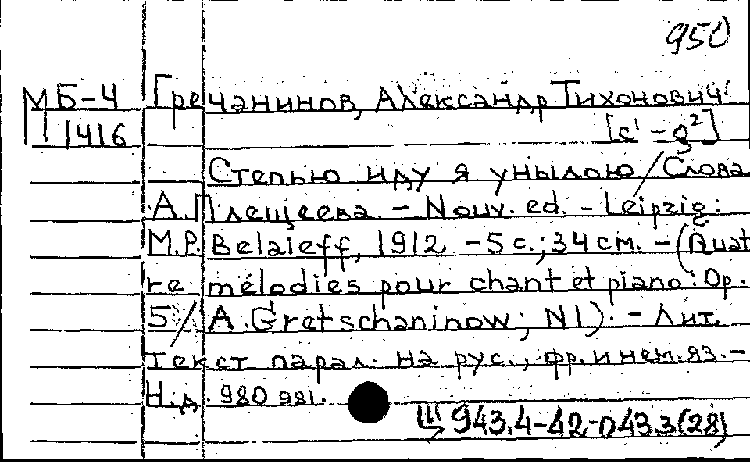 950
МБ-4 Гречанинов, Александр Тихонович
1416 [c¹ - g²]
Степью иду я унылою / Слова
А. Плещеева. - Nouv. ed. - Leipzig:
M.P. Belaieff, 1912 - 5 с.; 34 см. - (Quat
re mélodies pour chant et piano: Op.
5 / A. Gretschaninow; N1). - Лит.
текст парал. на рус., фр. и нем. яз. -
Н.д. 980 981.
943.4-42-043.3(28)